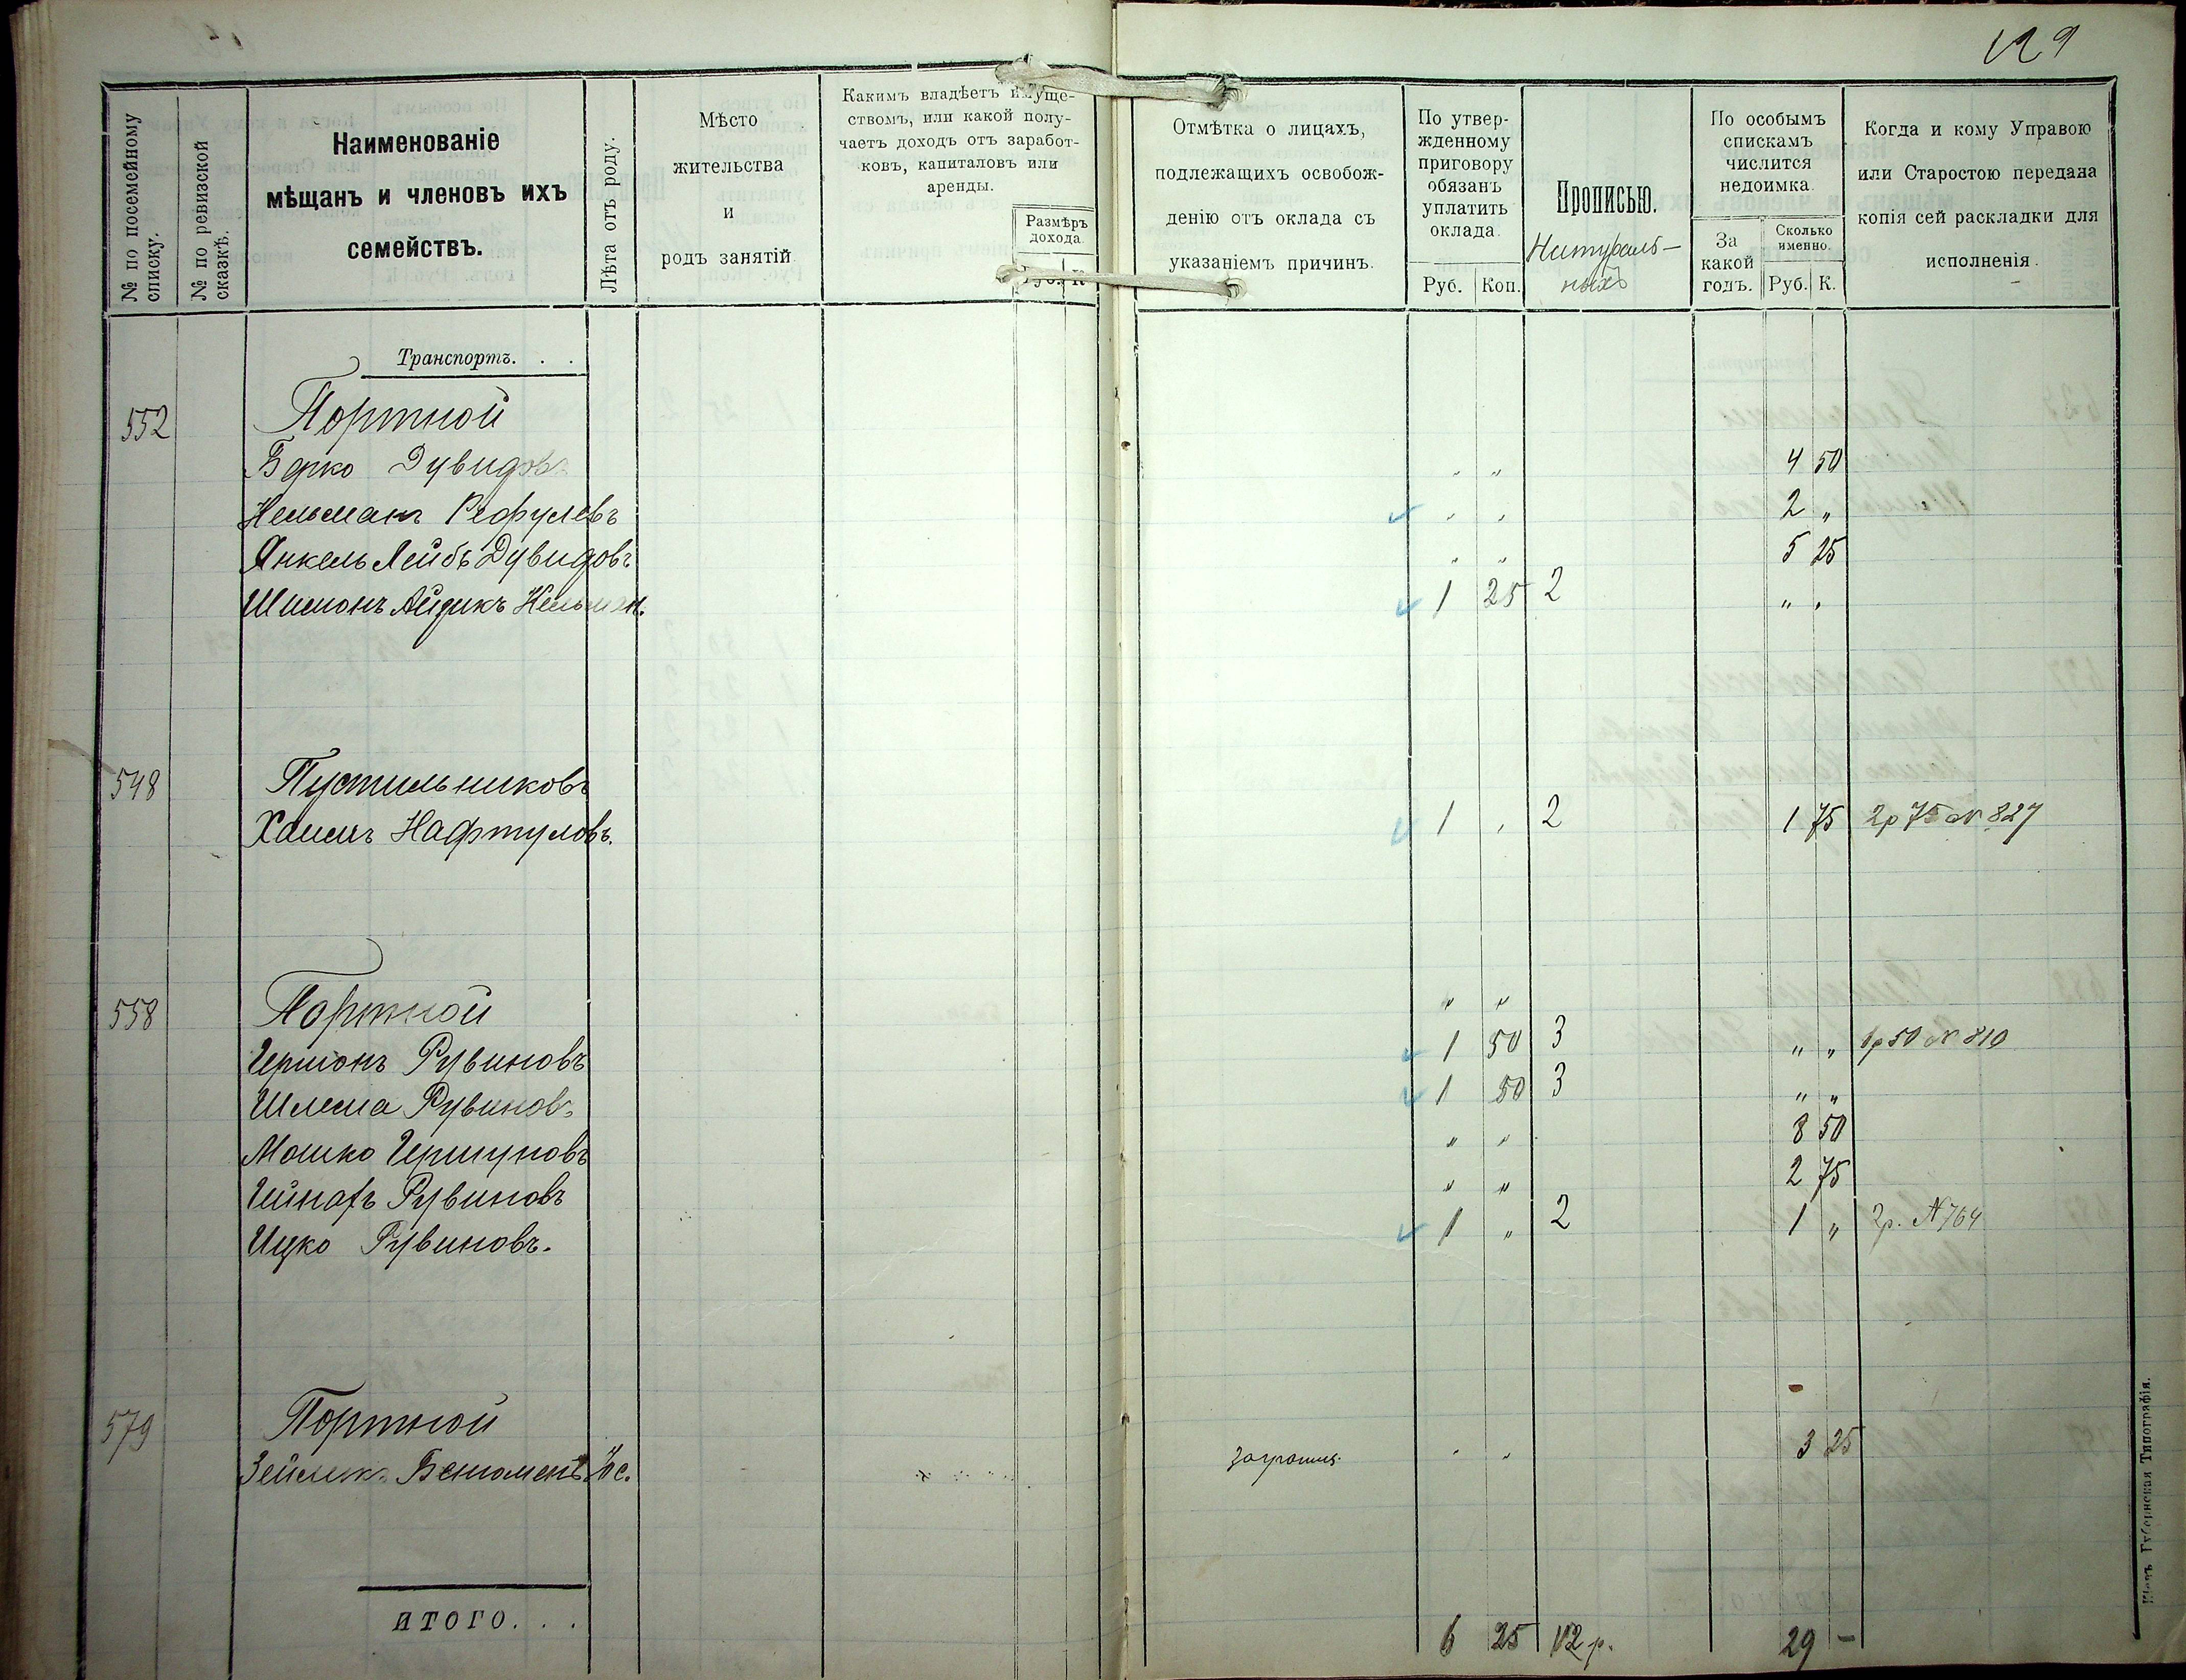 129
№ по посемейному списку.
№ по ревизской сказкѣ.
Наименованіе
мѣщанъ и членовъ ихъ
семействъ.
Лѣта отъ роду.
Мѣсто
жительства
и
родъ занятій.
Какимъ владѣетъ имуще-
ствомъ, или какой полу-
чаетъ доходъ отъ заработ-
ковъ, капиталовъ или
аренды.
Размѣръ
дохода.
Руб. К
Отмѣтка о лицахъ,
подлежащихъ освобож-
денію отъ оклада съ
указаніемъ причинъ.
По утвер-
жденному
приговору
обязанъ
уплатить
оклада.
Руб. Коп.
Прописью.
Натураль-
ныхъ
По особымъ
спискамъ
числится
недоимка.
За
какой
годъ.
Сколько
именно.
Руб. К.
Когда и кому Управою
или Старостою передана
копія сей раскладки для
исполненія.
Транспортъ. . .
552 Портной
Берко Дувидовъ " " 4 50
Нельманъ Рефулевъ " " 2 "
Янкель Лейбъ Дувидовъ " " 5 25
Шимонъ Айзикъ Нельман. 1 25 2 " "
548 Пустильниковъ
Хаимъ Нафтуловъ. 1 " 2 1 75 2р 75 № 827
558 Портной " "
Гершонъ Рувиновъ 1 50 3 " " 1р 50 № 810
Шлема Рувиновъ 1 50 3 " "
Мошко Гершуновъ " " 8 50
Рувиновъ " " 2 75
Ицко Рувиновъ. 1 " 2 1 " 2р. № 764
579 Портной
Беніоменъ " " 3 25
ИТОГО. . .
6 25 12 р. 29 –
Кіевъ Губернская Типографія.